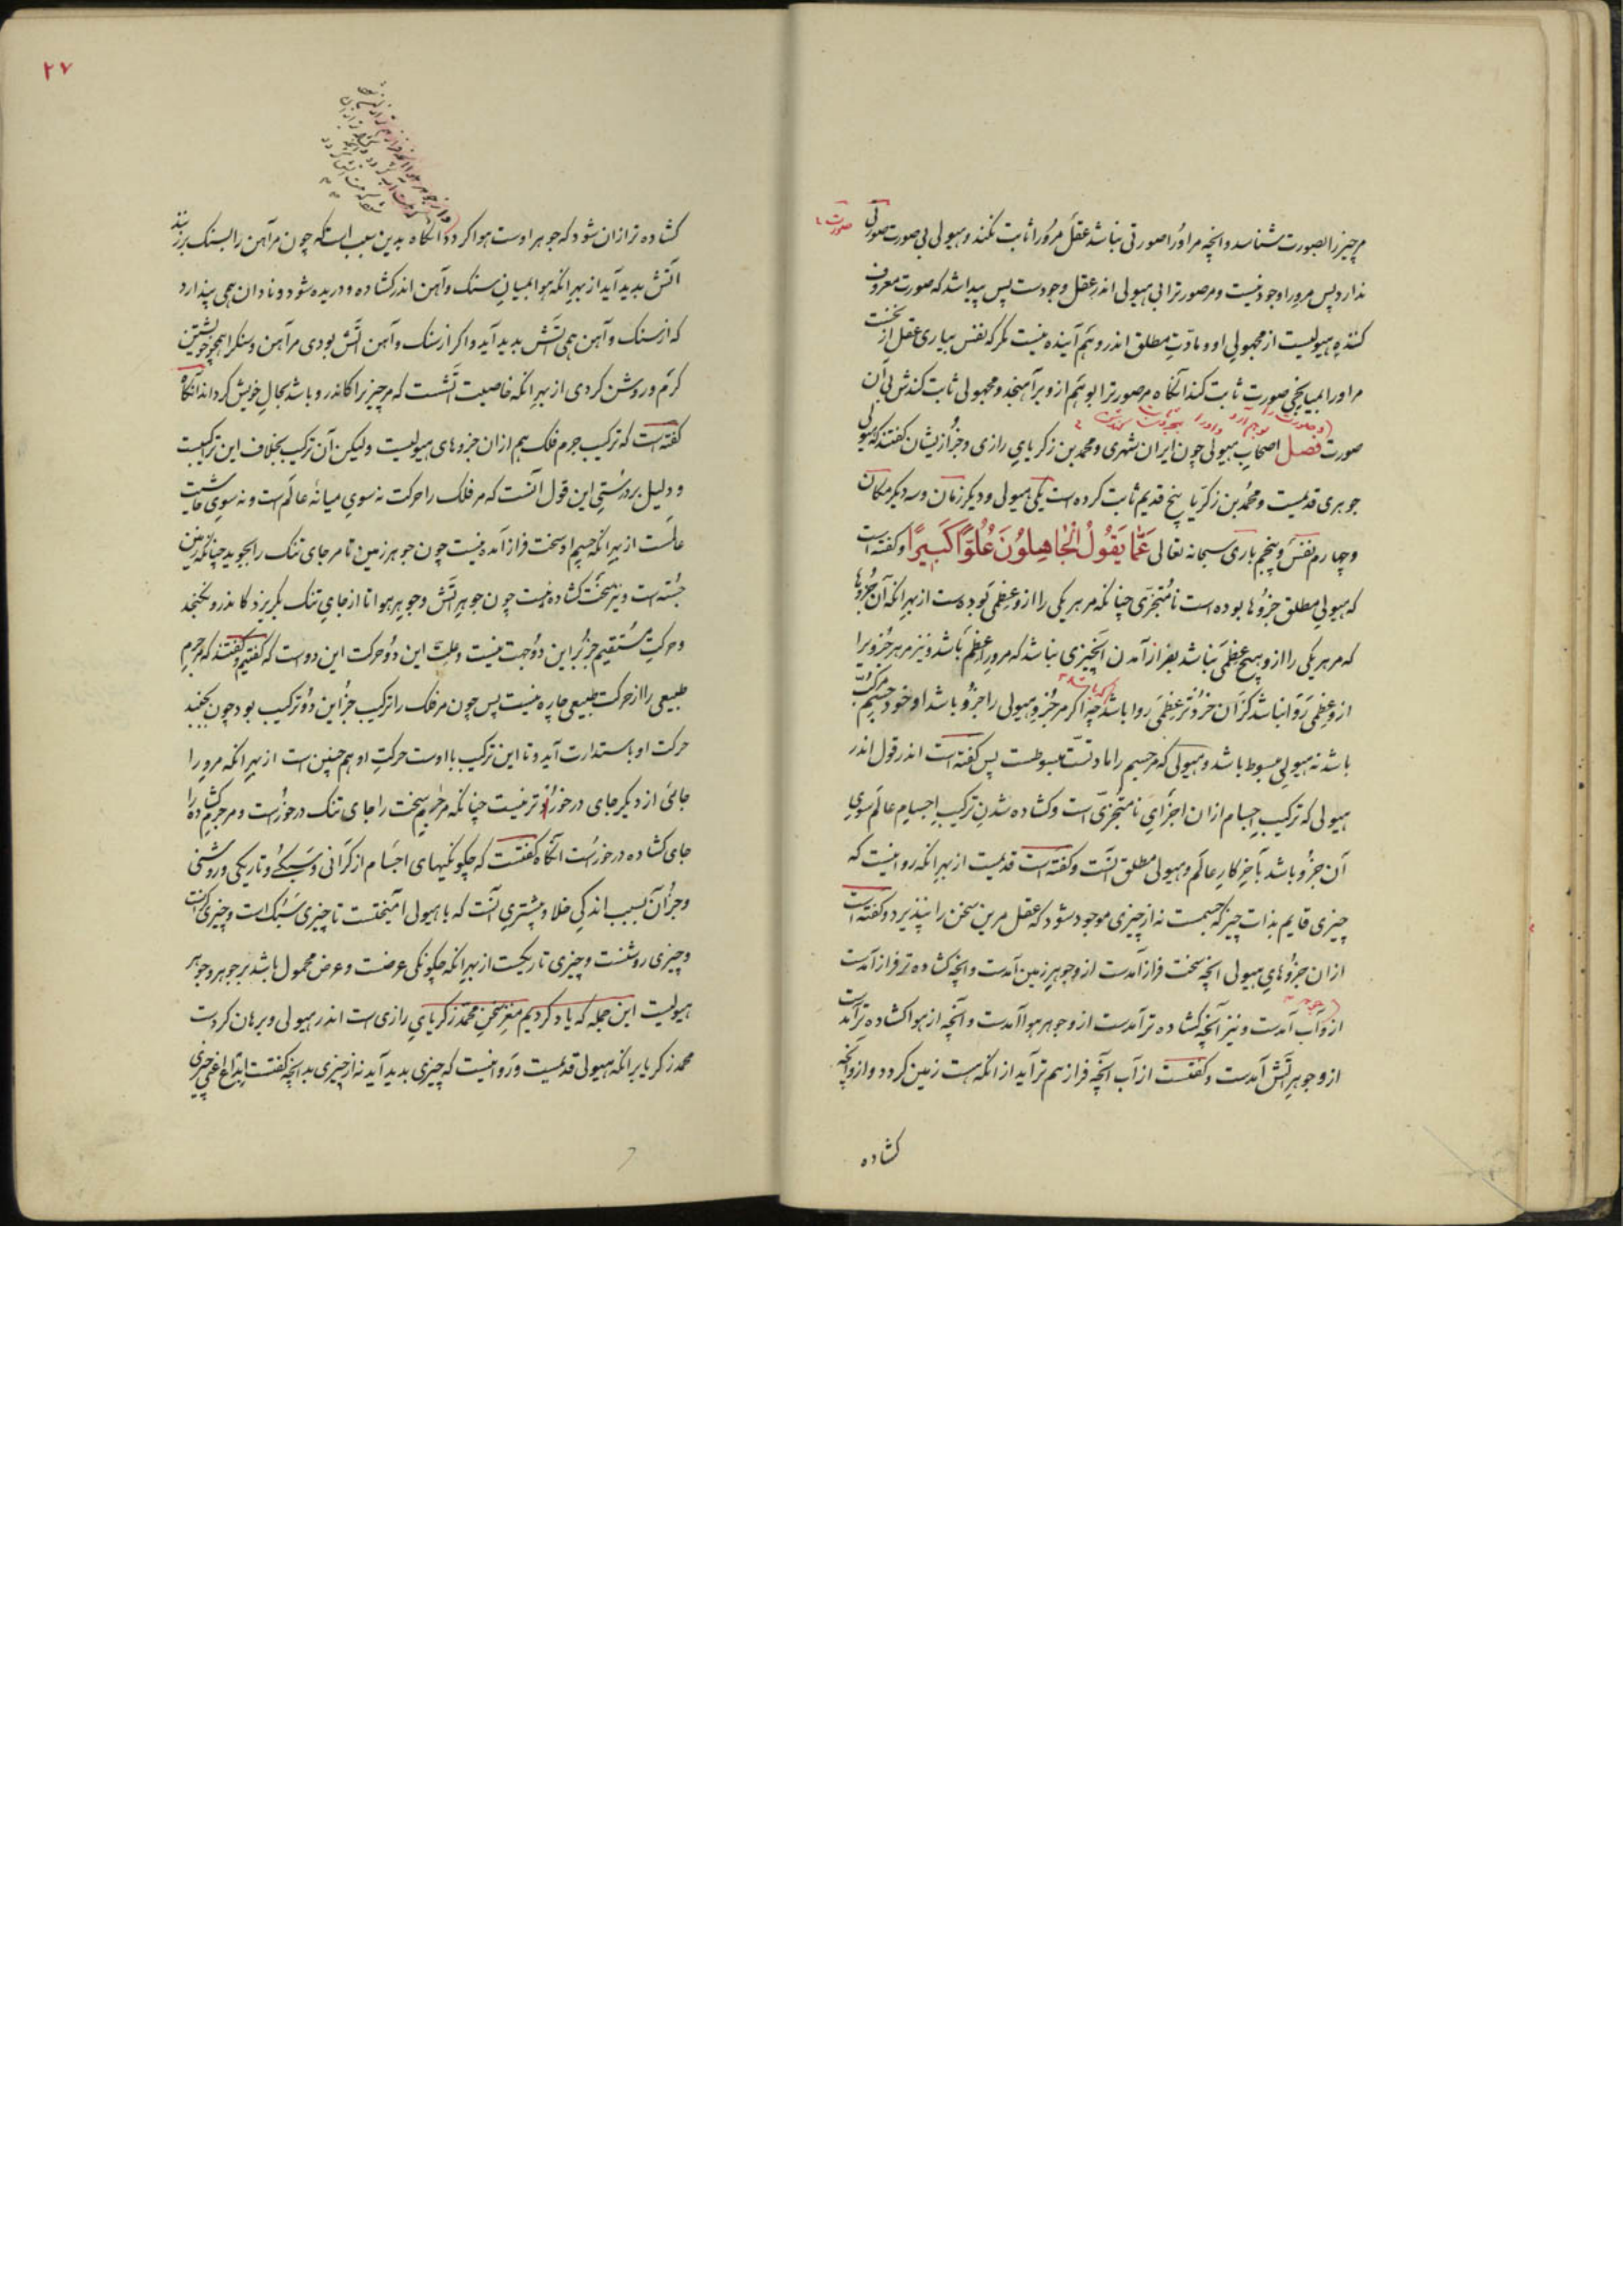 مرچیز را بصورت شناسد و انچه مر اورا صورتی نباشد عقل مرورا ثابت نکند و هیولی بی صورت صورتی
ندارد پس مرورا وجود نیست و مر صورترا بی هیولی اندر عقل وجودست پس پیدا شد که صورت معروف
کنندهٔ هیولیست از مجهولی او و مادت مطلق اندر وهم آینده نیست مگر که نفس بیاری عقل از نخست
مر اورا بمیانجی صورت ثابت کند انگاه مر صورترا بوهم ازو برآهنجد و مجهولی ثابت کندش بی آن
صورت فصل اصحاب هیولی چون ایران شهری و محمد بن زکریای رازی و جز ازیشان گفتند که هیولی
جوهری قدیمست و محمد بن زکریا پنج قدیم ثابت کرده است یکی هیولی و دیگر زمان و سه دیگر مکان
و چهارم نفس و پنجم باری سبحانه تعالی عَمَّا يَقُولُ الْجَاهِلُونَ عُلُوًّا كَبِيرًا و گفته است
که هیولی مطلق جزوها بوده است نامتجزی چنانکه مر هر یکی را ازو عظمی بوده است از بهر انکه آن جزوها
که مر هر یکی را ازو هیچ عظمی نباشد بفراز آمدن آن چیزی نباشد که مرورا عظم باشد و نیز مر هر جزویرا
ازو عظمی روا نباشد کزان خردتر عظمی روا باشد چه اگر مر جزو هیولی را جزو باشد او خود جسم مرکب
باشد نه هیولی مبسوط باشد و هیولی که مر جسم را مادتست مبسوطست پس گفته است اندر قول اندر
هیولی که ترکیب اجسام ازان اجزای نامتجزی است و گشاده شدن ترکیب اجسام عالم سوی
آن جزو باشد بآخر کار عالم و هیولی مطلق انست و گفته است قدیمست از بهر انکه روا نیست که
چیزی قایم بذات چیز که جسمست نه از چیزی موجود شود که عقل مرین سخن را نپذیرد و گفته است
ازان جزوهای هیولی انچه سخت فراز آمدست ازو جوهر زمین آمدست و انچه گشاده تر فراز آمدست
ازو آب آمدست و نیز آنچه گشاده تر آمدست ازو جوهر هوا آمدست و آنچه از هوا گشاده تر آمدست
ازو جوهر آتش آمدست و گفتست از آب آنچه فراز هم تر آید از انکه هست زمین گردد و ازو آنچه
گشاده
٢٧
گشاده تر ازان شود که جوهر اوست هوا گردد انگاه بدین سبب است که چون مر آهن را بسنگ برزنند
آتش پدید آید از بهر انکه هوا بمیان سنگ و آهن اندر گشاده و دریده شود و نادان همی پندارد
که از سنگ و آهن همی آتش پدید آید و اگر از سنگ و آهن آتش بودی مر آهن و سنگ را همچو خویشتن
گرم و روشن کردی از بهر انکه خاصیت آتشست که مر چیز را کاندرو باشد بحال خویش گرداند انگاه
گفته است که ترکیب جرم فلک هم ازان جزوهای هیولیست ولیکن آن ترکیب بخلاف این ترکیبست
و دلیل بر درستی این قول آنست که مر فلک را حرکت نه سوی میانهٔ عالم است و نه سوی حاشیت
عالمست از بهر انکه جسم او سخت فراز آمده نیست چون جوهر زمین تا مر جای تنگ را بجوید چنانکه زمین
جسته است و نیز سخت گشاده نیست چون جوهر آتش و جوهر هوا تا از جای تنگ بگریزد کاندرو نگنجد
و حرکت مستقیم جز برین دو جهت نیست و علت این دو حرکت این دوست که گفتیم و گفتند که مر جرم
طبیعی را از حرکت طبیعی چاره نیست پس چون مر فلک را ترکیب جز این دو ترکیب بود چون بجنبد
حرکت او باستدارت آید و تا این ترکیب با اوست حرکت او هم چنین است از بهر انکه مرورا
جائی از دیگر جای در خورتر نیست چنانکه مر جرم سخت را جای تنگ در خورست و مر جرم گشاده را
جای گشاده در خورست انگاه گفتست که چگونگیهای اجسام از گرانی و سبکی و تاریکی و روشنی
و جز آن بسبب اندکی خلا و بیشتری آنست که با هیولی آمیختست تا چیزی سبک است و چیزی گرانست
و چیزی روشنست و چیزی تاریکست از بهر انکه چگونگی عرضست و عرض محمول باشد بر جوهر و جوهر
هیولیست این جمله که یاد کردیم مغز سخن محمد زکریای رازی است اندر هیولی و برهان کردست
محمد زکریا بر انکه هیولی قدیمست و روا نیست که چیزی پدید آید نه از چیزی بدانچه گفتست ابداع اعنی چیزی